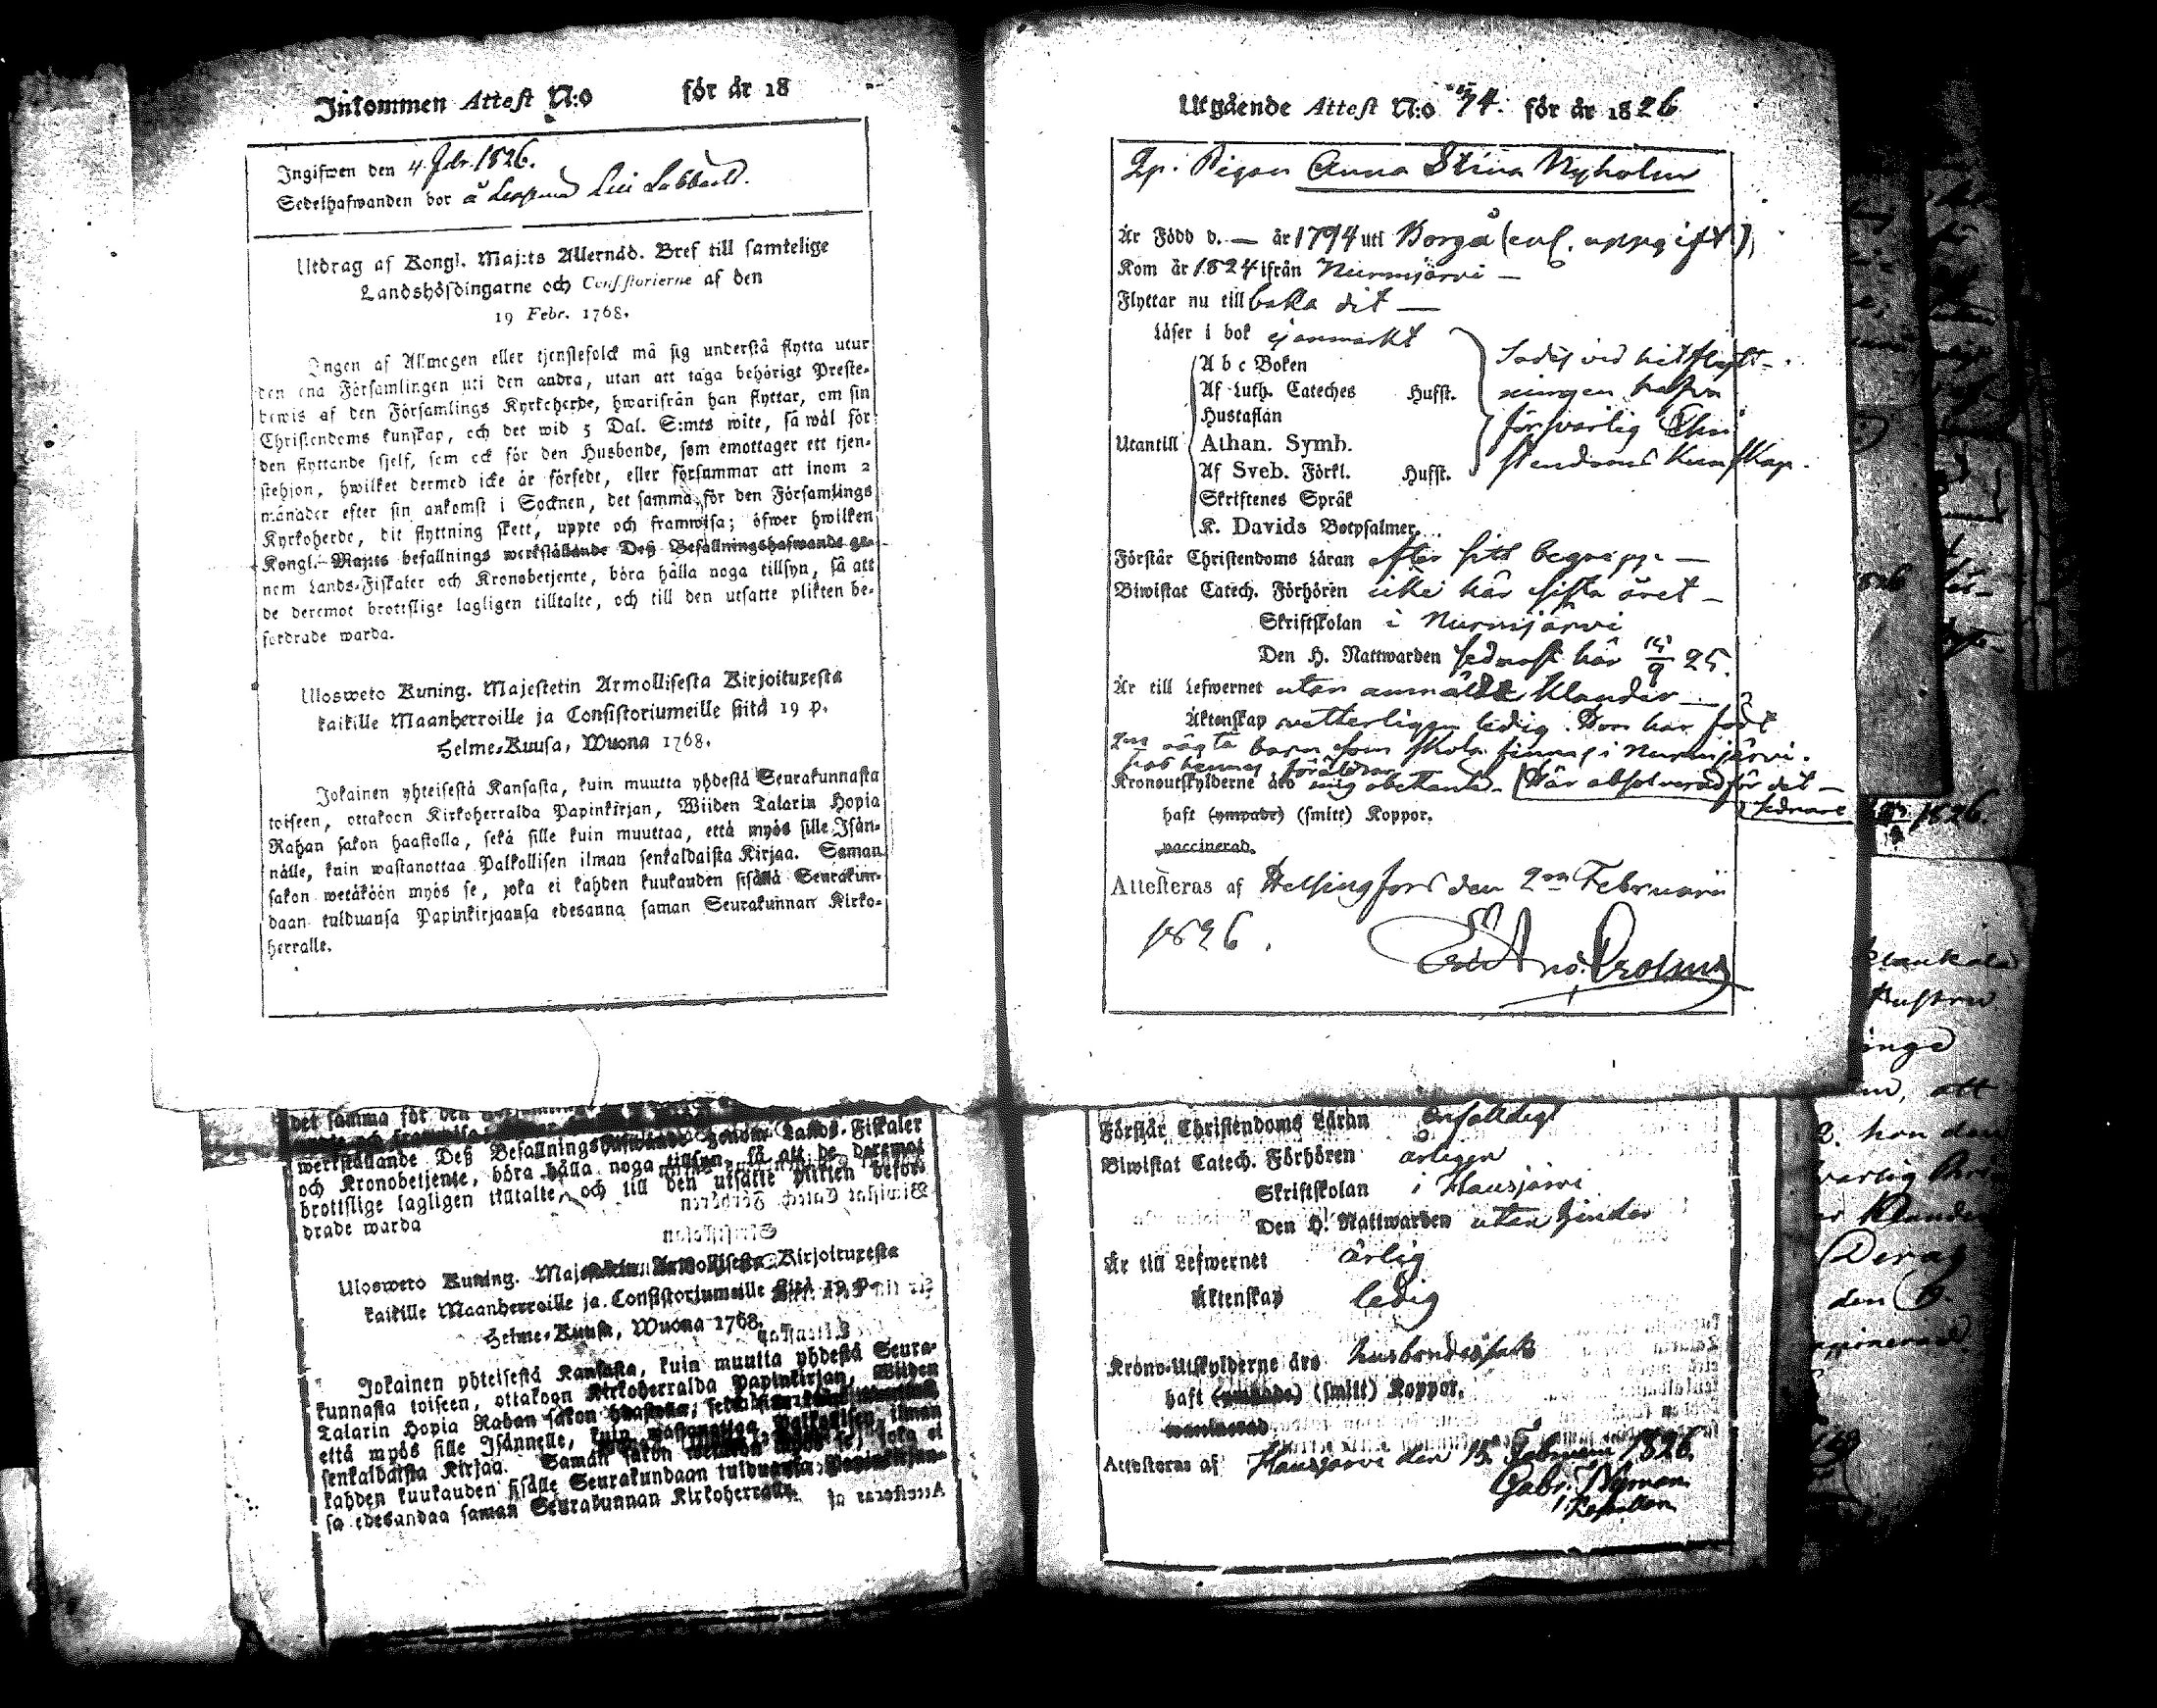 Inkommen Attest N:o för år 18
Ingifwen den 4. Febr. 1826.
Sedelhafwanden bor å
Utdrag af Kongl. Maj:ts Allernåd. Bref till samtelige
Landshöfdingarne och Consistorierne af den
19 Febr. 1768.
Ingen af Allmogen eller tjenstefolck må sig understå flytta utur
den ena Församlingen uti den andra, utan att taga behörigt Preste-
bewis af den Församlings Kyrkoherde, hwarifrån han flyttar, om sin
Christendoms kunskap, och det wid 5 Dal. S:mts wite, så wäl för
den flyttande sjelf, som ock för den Husbonde, som emottager ett tjen-
stehjon, hwilket dermed icke är försedt, eller försummar att inom 2
månader efter sin ankomst i Socknen, det samma för den Församlings
Kyrkoherde, dit flyttning skett, uppte och framwisa; öfwer hwilken
Kongl. Maj:ts befallnings werkställande Deß Befallningshafwande ge-
nom Lands-Fiskaler och Kronobetjente, böra hålla noga tillsyn, så att
de deremot brottslige lagligen tilltalte, och till den utsatte plikten be-
fordrade warda.
Ulosweto Kuning. Majestetin Armollisesta Kirjoituxesta
kaikille Maanherroille ja Consistoriumeille siitä 19 p.
Helme-Kuusa, Wuona 1768.
Jokainen yhteisestä Kansasta, kuin muutta yhdestä Seurakunnasta
toiseen, ottakoon Kirkoherralda Papinkirjan, Wiiden Talarin Hopia
Rahan sakon haastolla, sekä sille kuin muuttaa, että myös sille Isän-
nälle, kuin wastanottaa Palkollisen ilman senkaldaista Kirjaa. Saman
sakon wetäköön myös se, joka ei kahden kuukauden sisällä Seurakun-
daan tulduansa Papinkirjaansa edesanna saman Seurakunnan Kirko-
herralle.
Utgående Attest N:o 74. för år 1826
Qp. Pigan Anna Stina Nyholm
Är Född d. — år 1794 uti Borgå (enl. uppgift)
Kom år 1824 ifrån Nurmijärvi —
Flyttar nu tillbaka dit —
Läser i bok ej anmärkt
A b c Boken
Af Luth. Cateches Husst.
Hustaflan
Utantill Athan. Symb.
Af Sveb. Förkl. Husst.
Skriftenes Språk
K. Davids Botpsalmer.
Sades vid hitflytt-
ningen hafva
försvarlig Chri
stendoms Kunskap.
Förstår Christendoms Läran efter sitt begrepp. —
Biwistat Catech. Förhören icke här sista året —
Skriftskolan i Nurmijärvi
Den H. Nattwarden sednast här 15/9 25.
Är till Lefwernet utan anmäldt klander —
Äktenskap vetterligen ledig. Dom har födt
2ne oägta barn som skola finnas i Nurmijärvi.
hos hennes föräldrar
Kronoutskylderne äro mig obekanta — Här absolverad för det —
sednare
haft (ympade) (smitt) Koppor.
vaccinerad.
Attesteras af Helsingfors den 2n Februarii
1826.
det samma för den
werkställande Deß Befallningshafwande genom Lands-Fiskaler
och Kronobetjente, böra hålla noga tillsyn, så att de deremot
brottslige lagligen tilltalte, och till den utsatte plikten befor-
drade warda
Ulosweto Kuning. Majestetin Armollisesta Kirjoituxesta
kaikille Maanherroille ja Consistoriumeille siitä 19 p.
Helme-Kuusa, Wuona 1768.
Jokainen yhteisestä Kansasta, kuin muutta yhdestä Seura-
kunnasta toiseen, ottakoon Kirkoherralda Papinkirjan, Wiiden
Talarin Hopia Rahan sakon haastolla, sekä
että myös sille Isännelle, kuin wastanottaa Palkollisen ilman
senkaldaista Kirjaa. Saman sakon wetäköön myös se, joka ei
kahden kuukauden sisälle Seurakundaan tulduansa Papinkirjaan-
sa edesandaa saman Seurakunnan Kirkoherralle.
Förstår Christendoms Läran enfaldigt
Biwistat Catech. Förhören årligen
Skriftskolan i Hausjärvi
Den H. Nattwarden utan hinder
Är till Lefwernet ärlig
Äktenskap ledig
Krono-Utskylderne äro husbondes sak
haft (ympade) (smitt) Koppor.
vaccinerad
Attesteras af Hausjärvi den 13 Februari 1826.
Gabr. Nyman
Kapellan
1826.
att
hon den
den